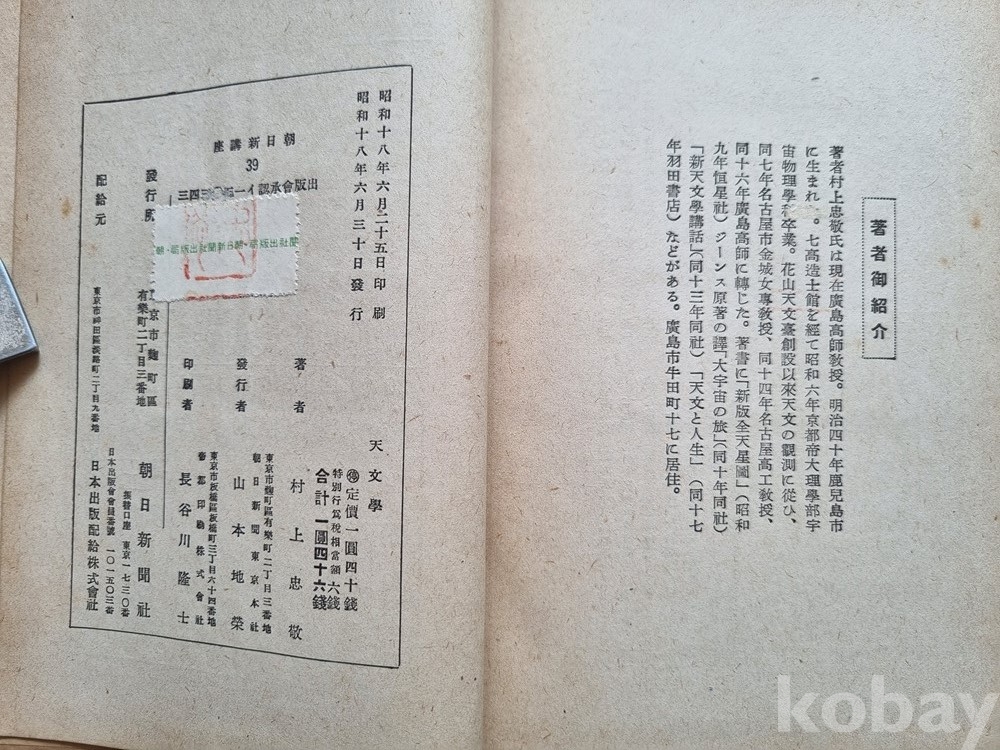 著者御紹介
著者村上忠敬氏は現在廣島高師敎授。明治四十年鹿兒島市
に生まれ。七高造士館を經て昭和六年京都帝大理學部宇
宙物理學科卒業。花山天文臺創設以來天文の觀測に從ひ、
同七年名古屋市金城女專敎授、同十四年名古屋高工敎授、
同十六年廣島高師に轉じた。著書に「新版全天星圖」(昭和
九年恒星社)ジーンス原著の譯「大宇宙の旅」(同十年同社)
「新天文學講話」(同十三年同社)「天文と人生」(同十七
年羽田書店)などがある。廣島市牛田町十七に居住。
昭和十八年六月二十五日印刷
昭和十八年六月三十日發行
天文學
定價一圓四十錢
特別行爲稅相當額六錢
合計一圓四十六錢
朝日新講座
39
出版會承認イ
著者 村上忠敬
東京市麴町區有樂町二丁目三番地
朝日新聞東京本社
發行者 山本地榮
東京市板橋區板橋町三丁目六十四番地
印刷株式會社
印刷者 長谷川隆士
發行所
京市麴町區
有樂町二丁目三番地
朝日新聞社
振替口座 東京一七三〇番
日本出版會會員番號 一〇一五〇三番
配給元
東京市神田區淡路町二丁目九番地
日本出版配給株式會社
kobay